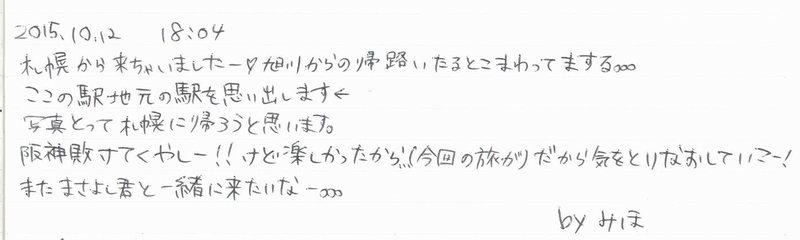 2015.10.12 18:04
札幌から来ちゃいましたー♡旭川からの帰路いたるとこまわってまする。。。
ここの駅地元の駅を思い出します←
写真とって札幌に帰ろうと思います。
阪神敗けてくやしー!!けど楽しかったから(今回の旅が)だから気をとりなおしていこー!
またまさよし君と一緒に来たいなー。。。
by みほ